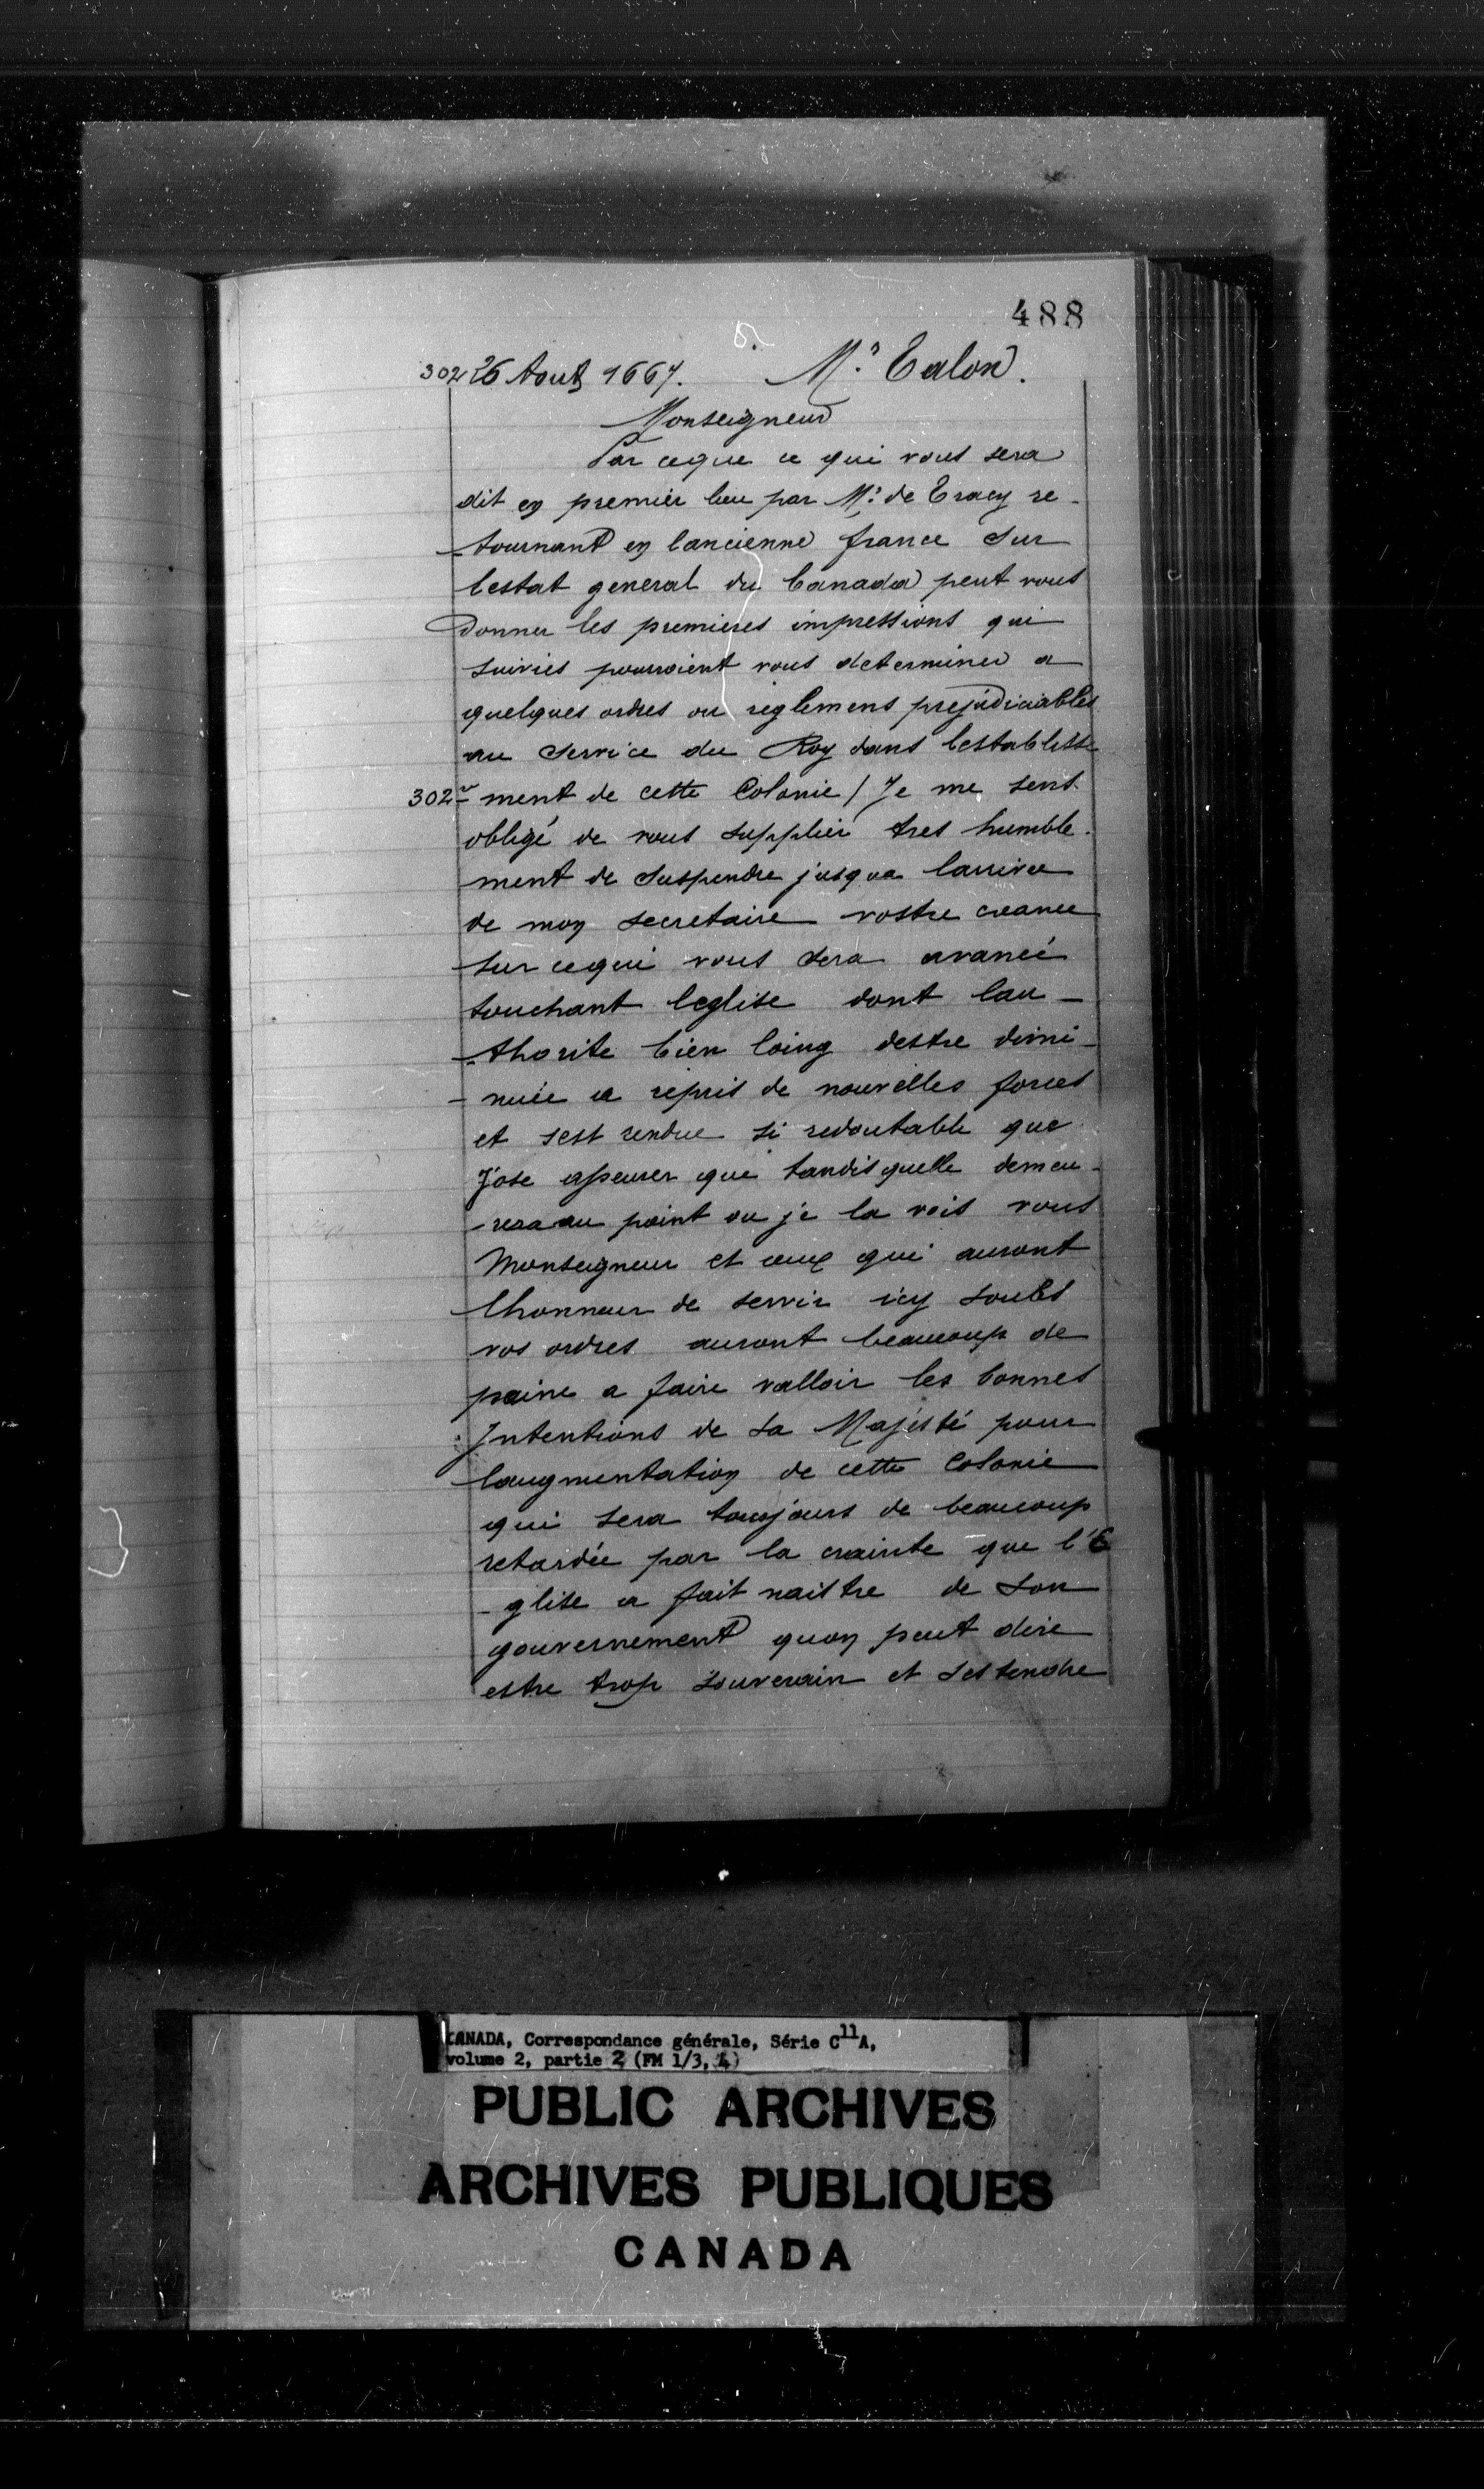 488
302 26 Aout 1667. Mr. Talon.
Monseigneur
Par ceque ce qui vous sera
dit en premier lieu par Mr. de Tracy re-
-tournant en lancienne france Sur
lestat general du Canada peut vous
Donner les premieres impressions qui
suivies pourroient vous determiner a
quelques ordres ou reglemens prejudiciables
au Service du Roy dans lestablisse
302v ment de cette Colonie / Je me sens
obligé de vous supplier tres humble-
ment de Suspendre jusqua larrivee
de mon secretaire vostre creance
sur cequi vous sera avancé
touchant leglise dont lau-
-thorite bien loing destre dimi-
-nuée a repris de nouvelles forces
et sest rendue si redoutable que
J'ose asseurer que tandisquelle demeu-
-rera au point ou je la vois vous
Monseigneur et ceux qui auront
lhonneur de servir icy soubs
vos ordres auront beaucoup de
peine a faire valloir les bonnes
Intentions de Sa Majesté pour
laugmentation de cette Colonie
qui sera tousjours de beaucoup
retardée par la crainte que l'E
-glise a fait naistre de son
gouvernement quon peut dire
estre trop souverain et sestendre
CANADA, Correspondance générale, Série C11A,
volume 2, partie 2 (FM 1/3, 4)
PUBLIC ARCHIVES
ARCHIVES PUBLIQUES
CANADA